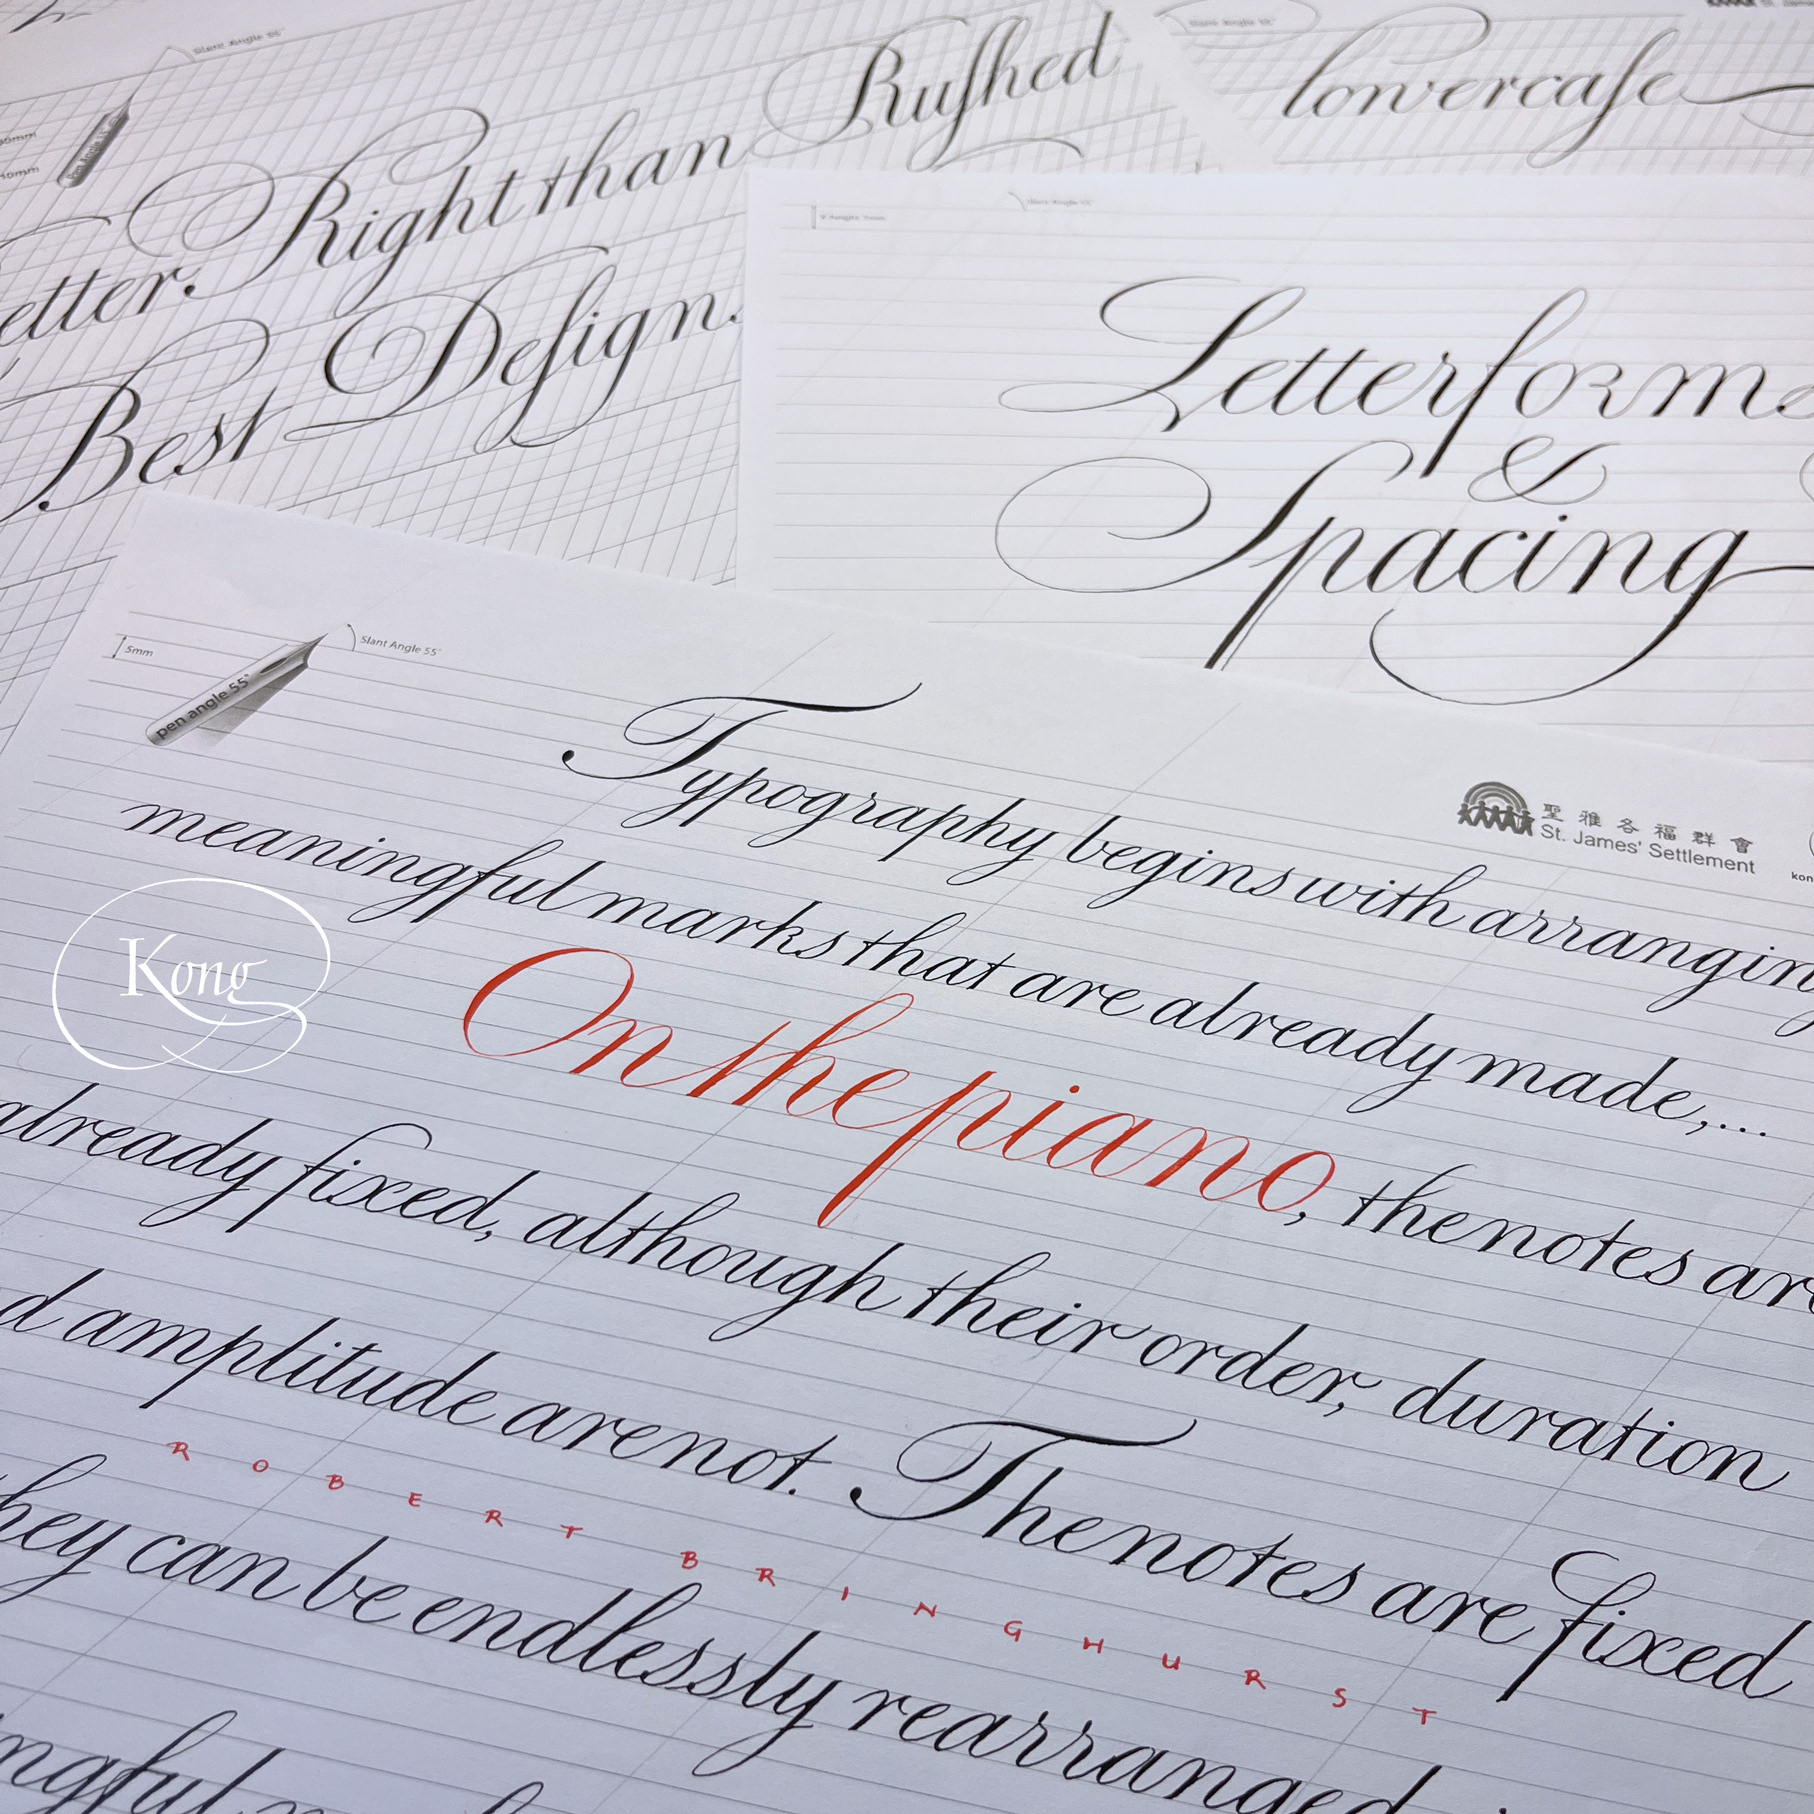 Slant Angle 55°
Rushed
Right than
etter.
Design.
Best
Slant Angle 55°
lowercase
Slant Angle 55°
Letterforms
&
Spacing
5mm
pen angle 55°
Slant Angle 55°
聖雅各福群會
St. James' Settlement
kon
Typography begins with arranging
meaningful marks that are already made,...
Kong
On the piano, the notes are
already fixed, although their order, duration
d amplitude are not. The notes are fixed
ROBERT BRINGHURST
hey can be endlessly rearranged
ingful